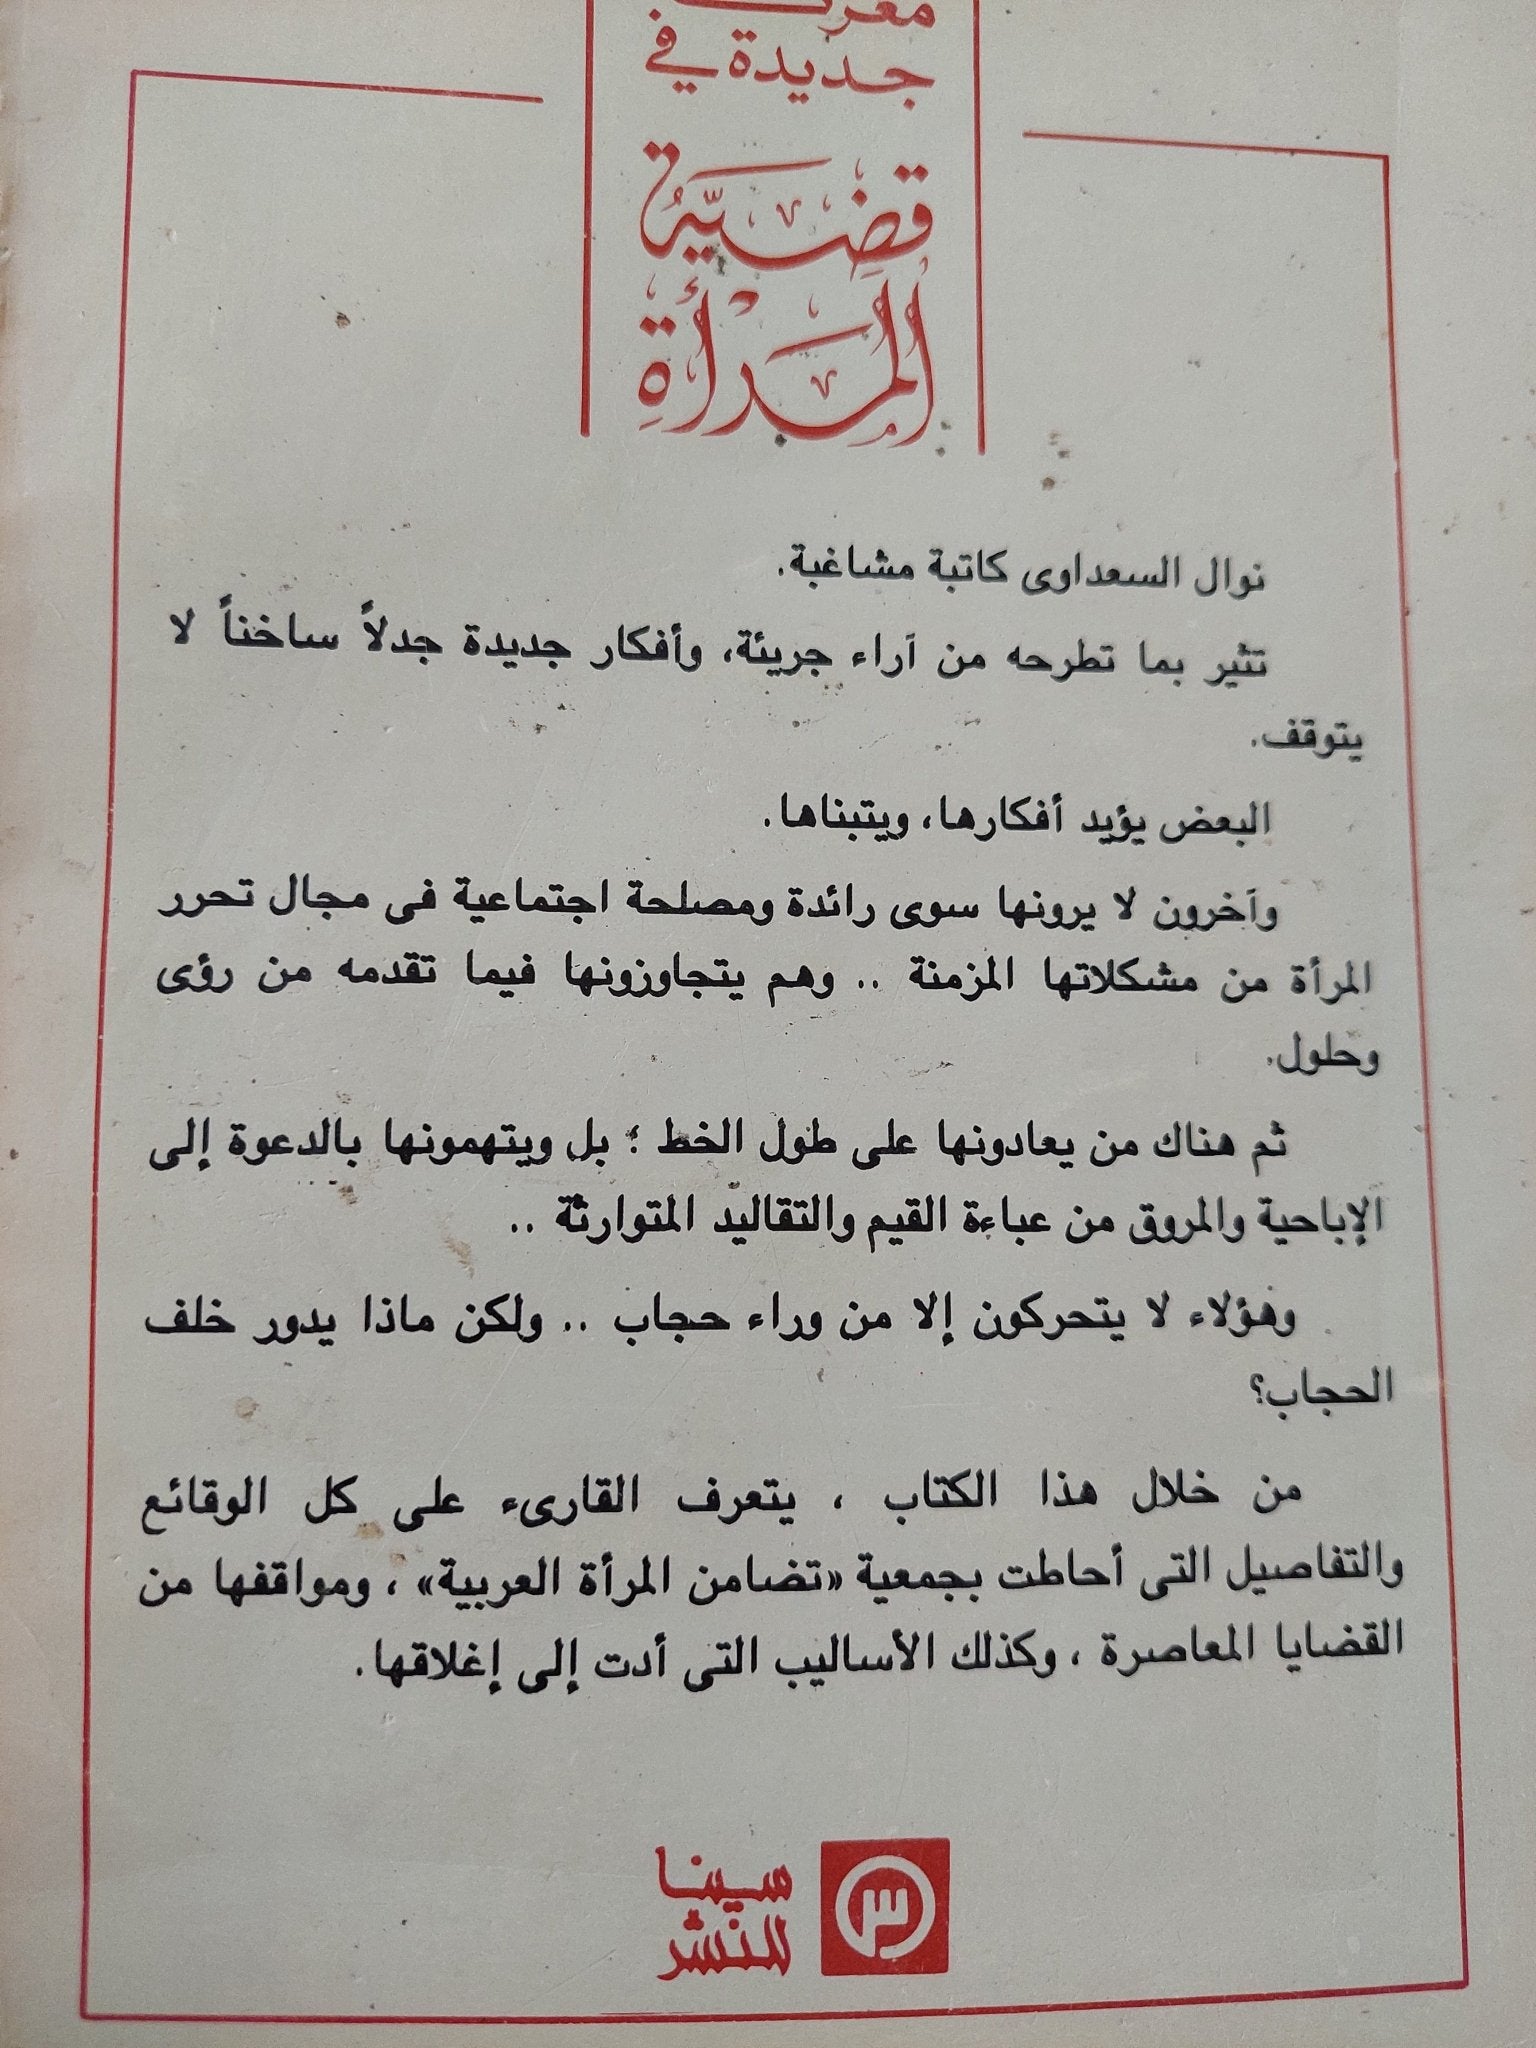 جديدة في
قضية
المرأة
نوال السعداوى كاتبة مشاغبة.
تثير بما تطرحه من آراء جريئة، وأفكار جديدة جدلاً ساخناً لا
يتوقف.
البعض يؤيد أفكارها، ويتبناها.
وآخرون لا يرونها سوى رائدة ومصلحة اجتماعية فى مجال تحرر
المرأة من مشكلاتها المزمنة .. وهم يتجاوزونها فيما تقدمه من رؤى
وحلول.
ثم هناك من يعادونها على طول الخط ؛ بل ويتهمونها بالدعوة إلى
الإباحية والمروق من عباءة القيم والتقاليد المتوارثة ..
وهؤلاء لا يتحركون إلا من وراء حجاب .. ولكن ماذا يدور خلف
الحجاب؟
من خلال هذا الكتاب ، يتعرف القارىء على كل الوقائع
والتفاصيل التى أحاطت بجمعية «تضامن المرأة العربية» ، ومواقفها من
القضايا المعاصرة ، وكذلك الأساليب التى أدت إلى إغلاقها.
سينا
للنشر